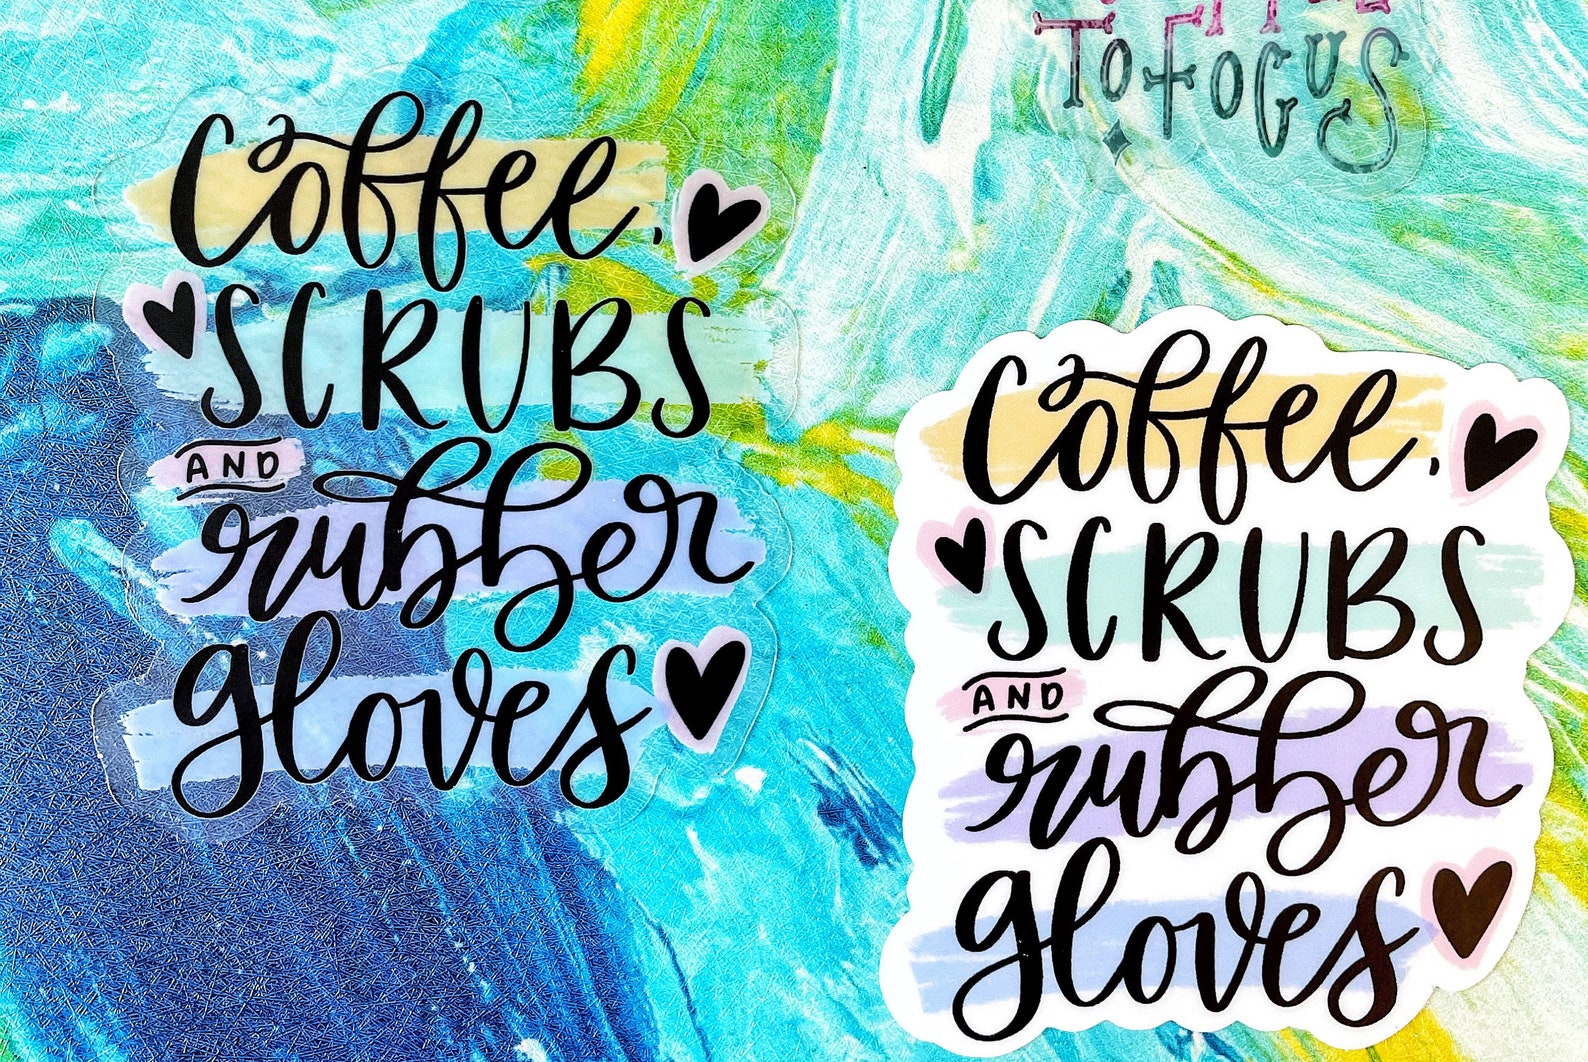 Coffee,
SCRUBS
AND
rubber
gloves
TO FOCUS
Coffee,
SCRUBS
AND
rubber
gloves